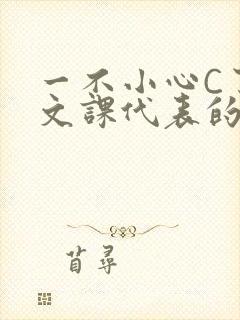 一不小心C
文課代表的
苜尋